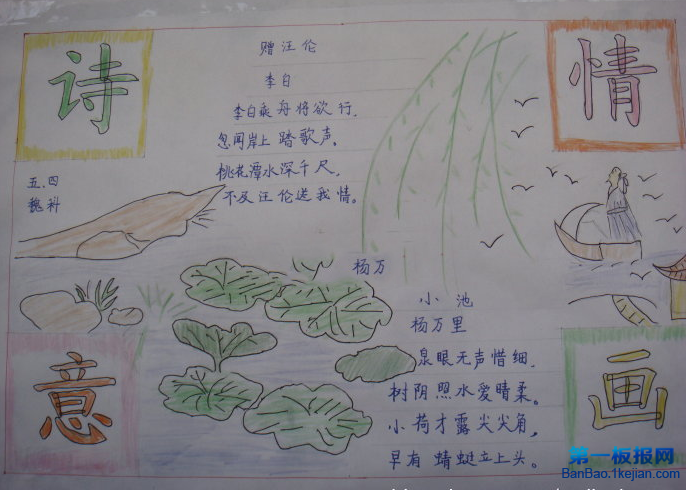 诗
情
赠汪伦
李白
李白乘舟将欲行,
忽闻岸上踏歌声,
桃花潭水深千尺,
不及汪伦送我情。
五.四
魏科
杨万
小池
杨万里
泉眼无声惜细,
树阴照水爱晴柔。
小荷才露尖尖角,
早有蜻蜓立上头。
意
画
第一板报网
BanBao.1kejian.com